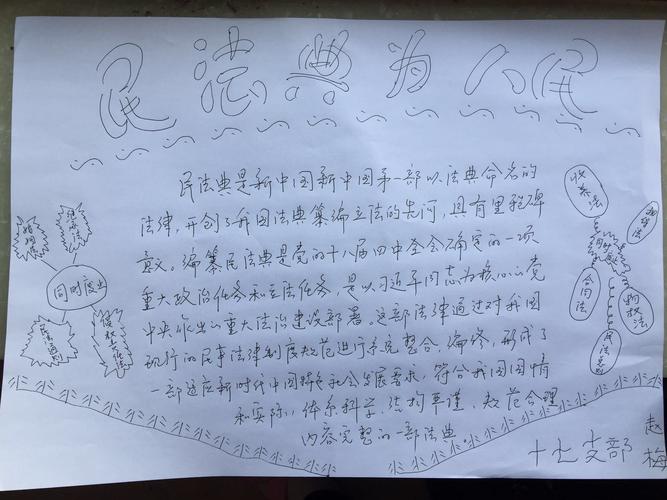 民法典为人民
民法典是新中国新中国第一部以法典命名的
法律,开创了我国法典纂编立法的先河,具有里程碑
意义。编纂民法典是党的十八届四中全会确定的一项
重大政治任务和立法任务,是以习近平同志为核心的党
中央作出的重大法治建设部署。这部法律通过对我国
现行的民事法律制度规范进行系统整合、编修,形成了
一部适应新时代中国特色社会发展要求,符合我国国情
和实际,体系科学、结构严谨、规范合理
内容完整的一部法典。
婚姻法
继承法
同时废止
民法通则
侵权责任法
收养法
担保法
同时废
合同法
物权法
民法总则
十七支部
赵梅